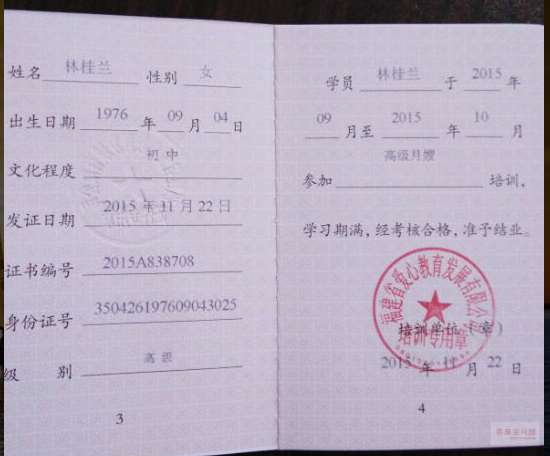 姓名 林桂兰 性别 女
出生日期 1976 年 09 月 04 日
文化程度 初中
发证日期 2015年11月22日
证书编号 2015A838708
身份证号 350426197609043025
级 别 高级
3
学员 林桂兰 于 2015 年
09 月至 2015 年 10 月
参加 高级月嫂 培训,
学习期满,经考核合格,准予结业。
福建省爱心教育发展有限公司
培训单位(章)
培训专用章
2015 年 11 月 22 日
4